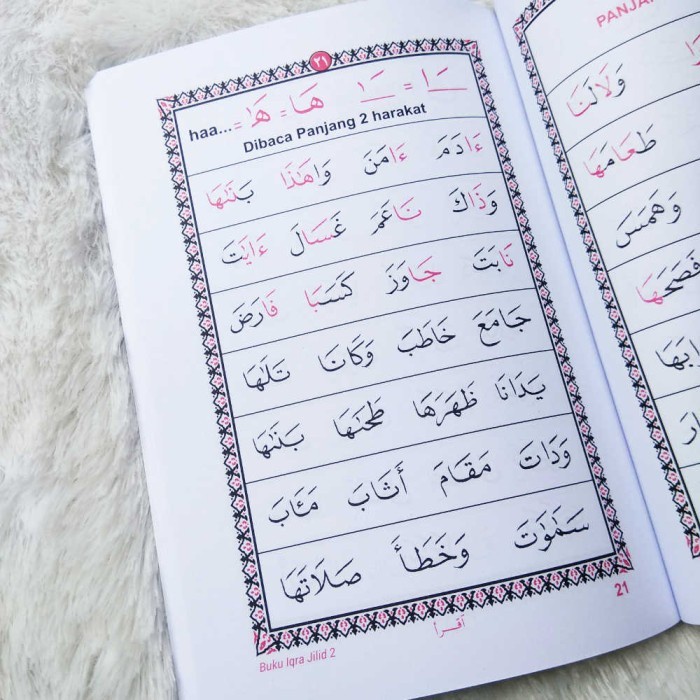 ٢١
haa... = هَا = هَا = ـَا = ـَٰ
Dibaca Panjang 2 harakat
ءَادَمَ ءَامَنَ وَاهَٰذَا بَنَٰهَا
وَذَاكَ نَاعَمَ غَسَالَ ءَايَٰتَ
نَابَتَ جَاوَزَ كَسَبَا فَارَضَ
جَامَعَ خَاطَبَ وَكَانَا تَلَٰهَا
يَدَانَا ظَهَرَهَا طَحَٰهَا بَنَٰهَا
وَدَاتَ مَقَامَ أَثَابَ مَـَٔابَ
سَمَٰوَٰتَ وَخَطَأَ صَلَاتَهَا
اقرأ
21
Buku Iqra Jilid 2
وَلَالَنَا
طَعَامَهَا
وَهَمَسَ